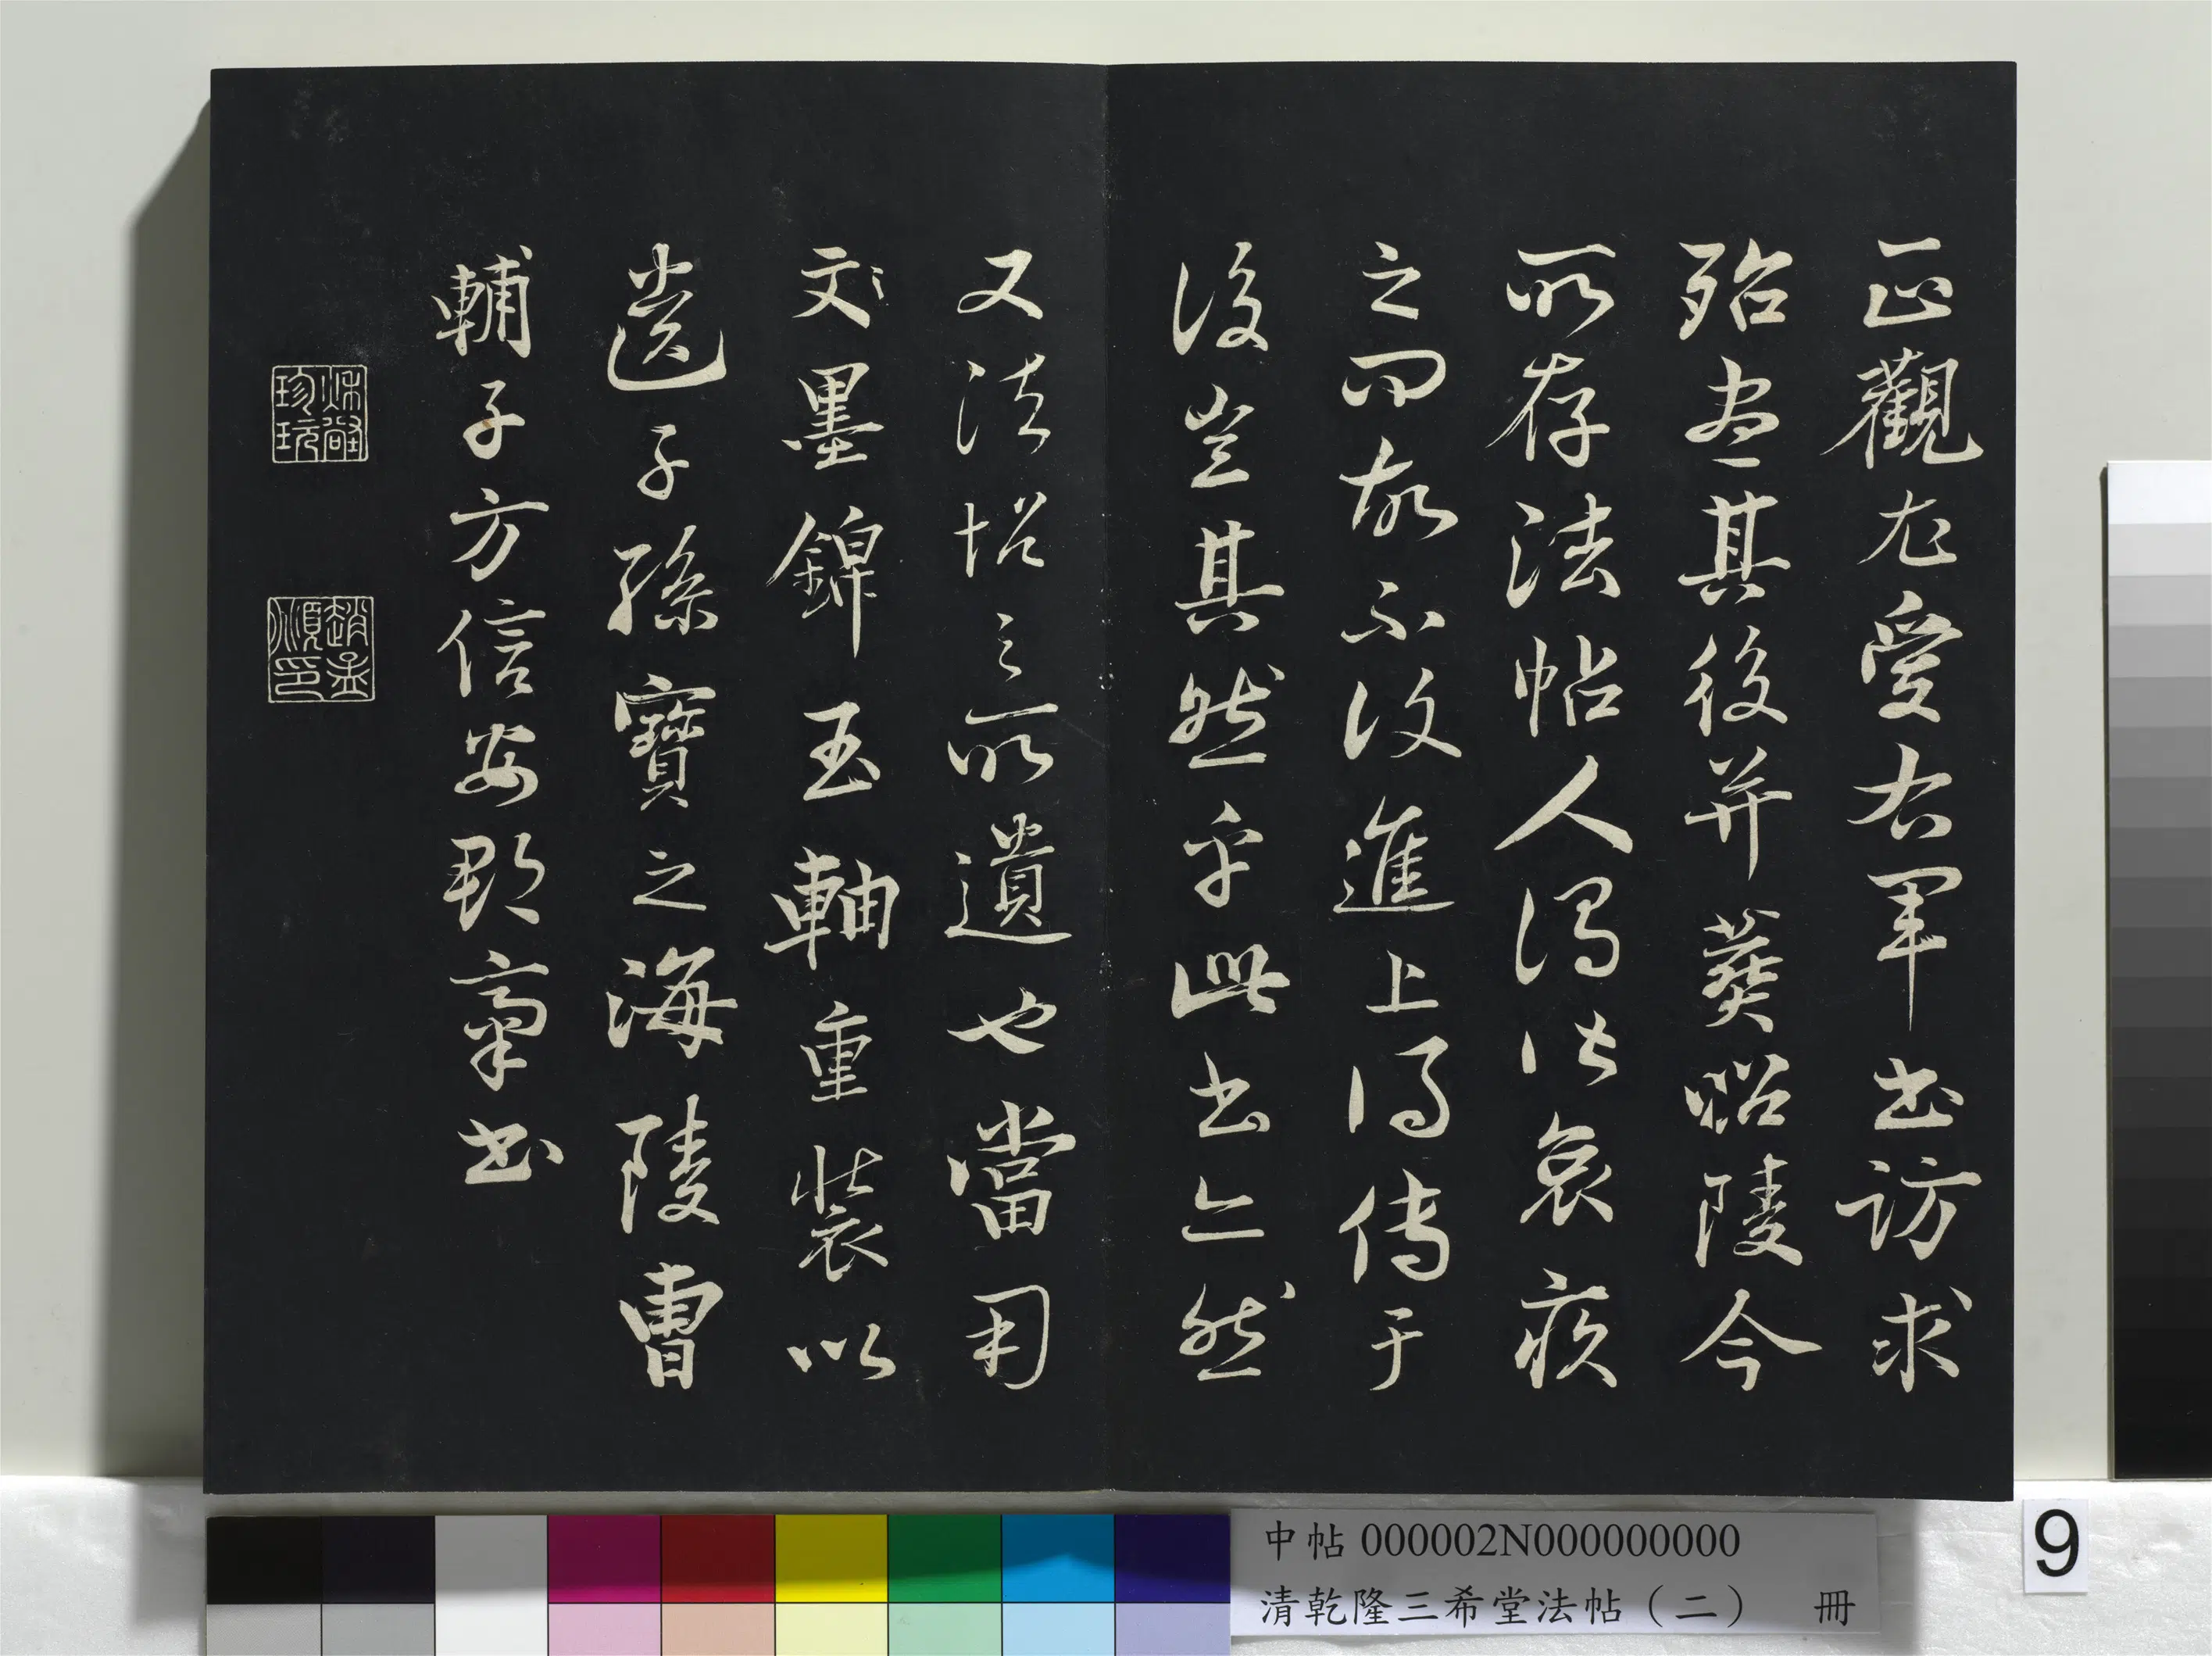 正觀尤愛右軍書訪求
殆盡其後并葬昭陵今
所存法帖人得皆哀疾
之問故不復進上得傳于
後豈其然乎此書亦然
又法帖之所遺也當用
文墨錦玉軸重裝以
遺子孫寶之海陵曹
輔子方信安郡齋書
秋壑珍玩
中帖 000002N000000000
清乾隆三希堂法帖（二） 冊
9